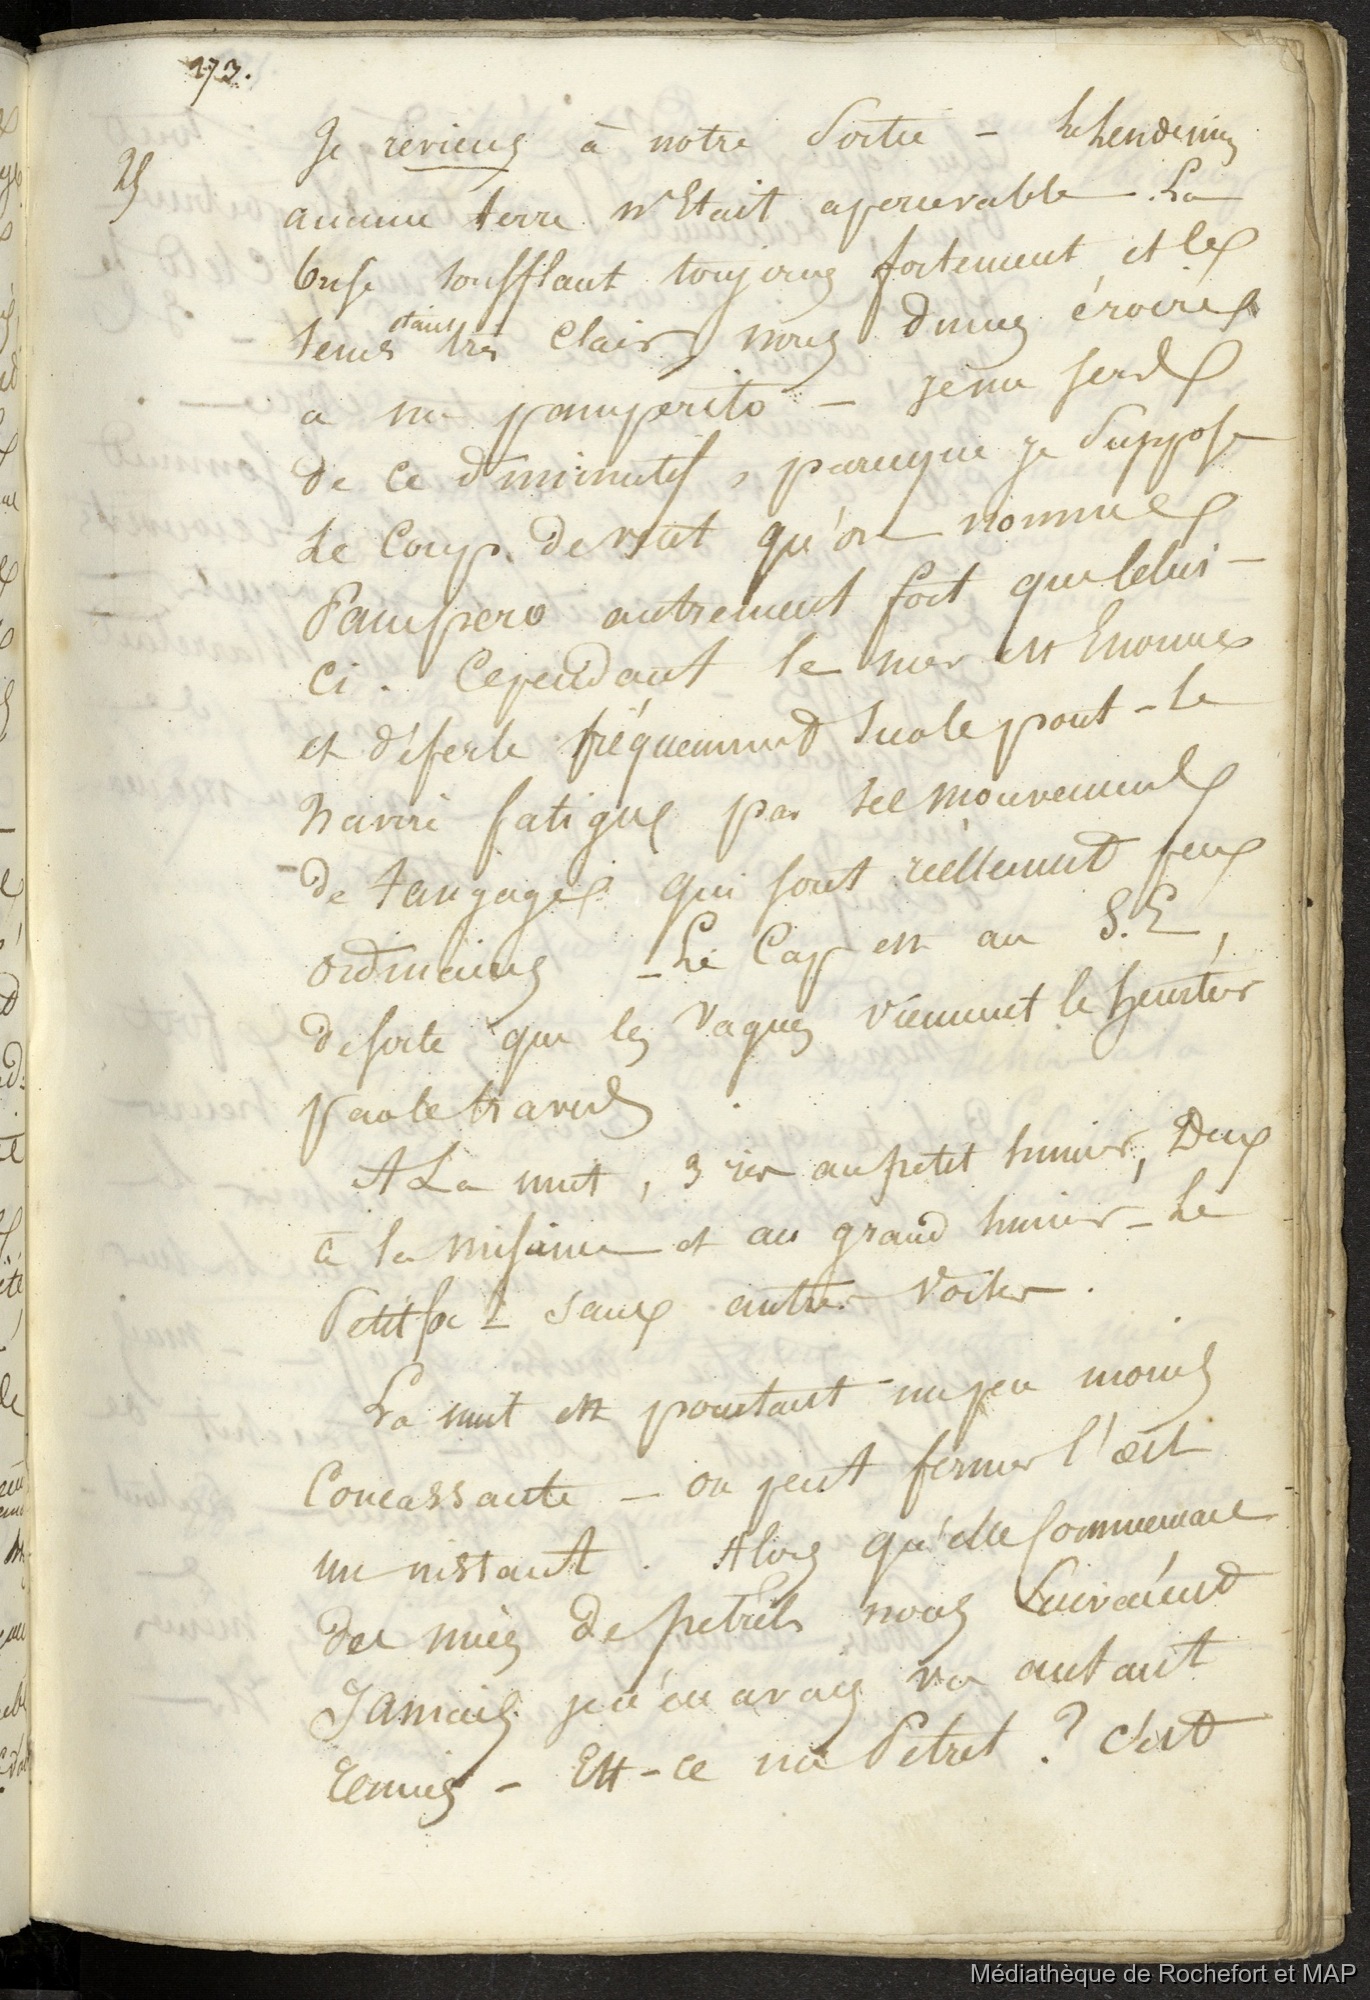 173.
25
Je reviens à notre sortie - le lendemain
aucune terre n'était apercevable. La
brise soufflant toujours fortement, et le
tems étant très clair, nous dumes croire
a un pamperito - je me sers
de ce diminutif, parceque je suppose
le coup de vent qu'on nomme
Pampero autrement fort que celui-
ci. Cependant la mer est énorme
et déferle fréquemment sur le pont - le
navire fatigue par ses mouvements
de tangage qui sont réellement peu
ordinaires - Le Cap est au S.E,
de sorte que les vagues viennent le heurter
par le travers.
A La nuit, 3 ris au petit hunier, Deux
à la misaine et au grand hunier - Le
Petit foc - sans autres voiles.
La nuit est pourtant un peu moins
Concassante - on peut fermer l'œil
un instant. Alors qu'elle commence
des nuées de petrels nous suivaient
Jamais je n'en avais vu autant
réunis - Est-ce un Petrel ? c'est
Médiathèque de Rochefort et MAP